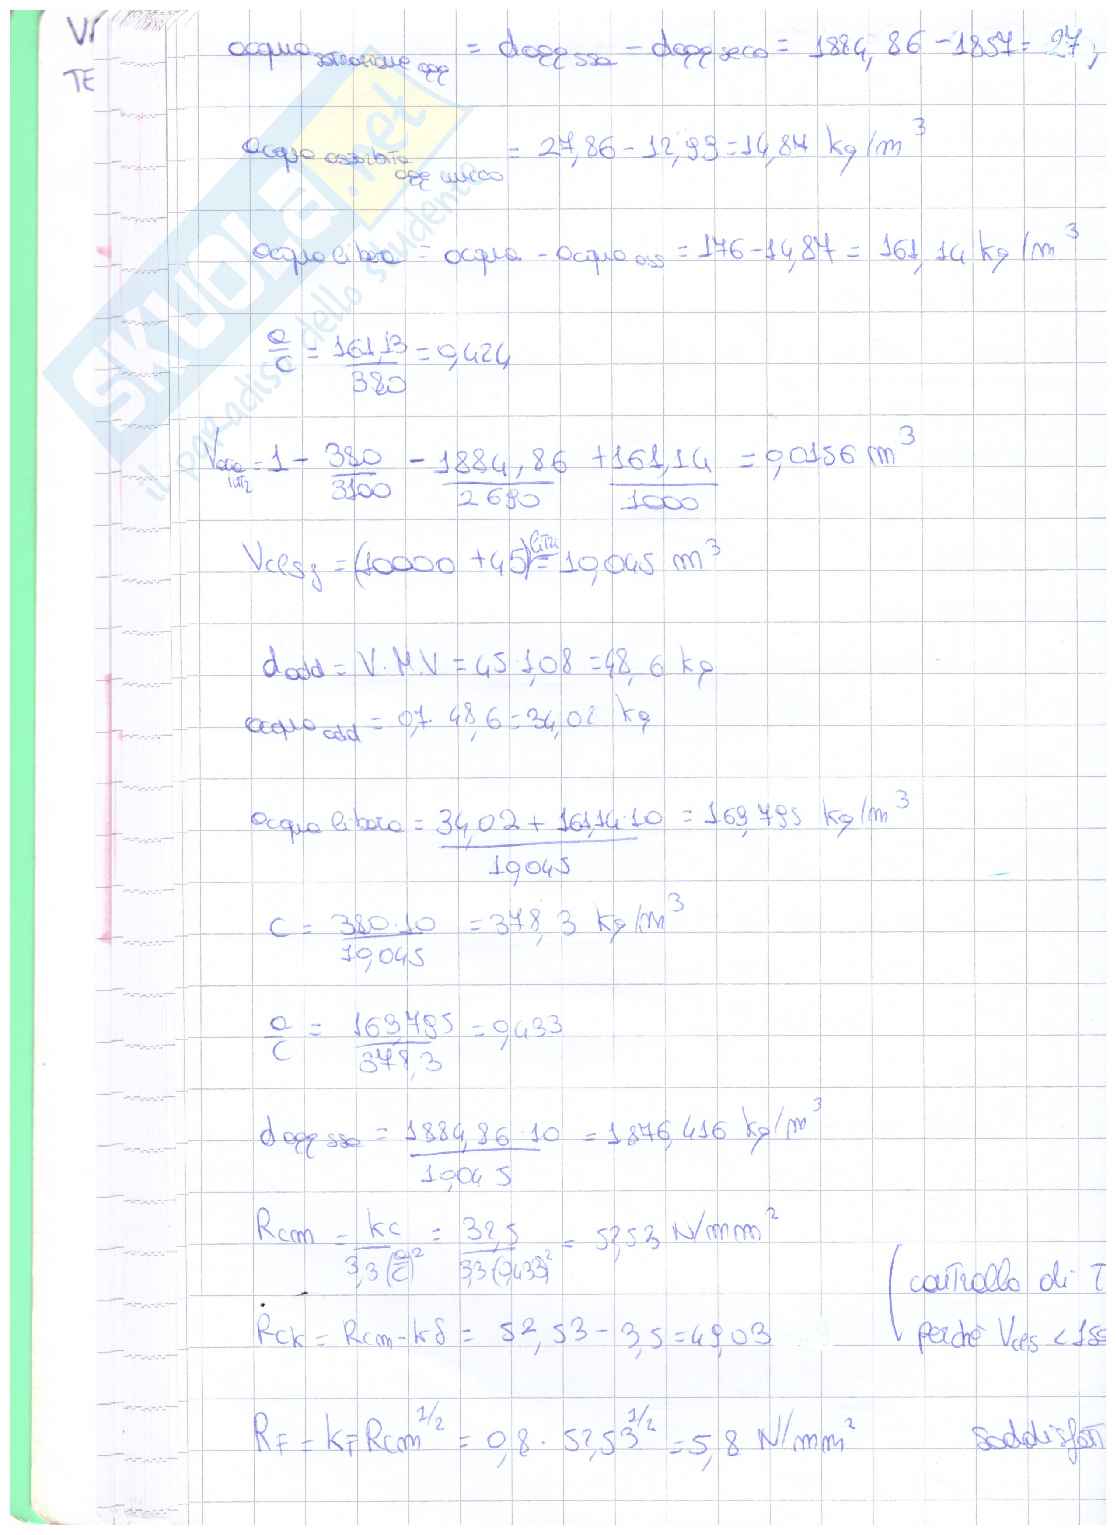 VI
TE
acqua saturazione agg = d agg ssa - d agg secco = 1884,86 - 1857 = 27,
acqua assorbita agg umido = 27,86 - 12,99 = 14,87 kg/m³
acqua libera = acqua - acqua ass = 176 - 14,87 = 161,14 kg/m³
a/c = 161,13/380 = 0,424
V aria intr = 1 - 380/3100 - 1884,86/2690 + 161,14/1000 = 0,0156 m³
Vcls,j = (10000 + 45) litri = 10,045 m³
d add = V·M.V = 45·1,08 = 48,6 kg
acqua add = 0,7·48,6 = 34,02 kg
acqua libera = (34,02 + 161,14·10)/10,045 = 163,795 kg/m³
c = 380·10/10,045 = 378,3 kg/m³
a/c = 163,795/378,3 = 0,433
d agg ssa = 1884,86·10/10,045 = 1876,416 kg/m³
Rcm = kc/3,3(a/c)² = 32,5/3,3(0,433)² = 52,53 N/mm²
(controllo di T
Rck = Rcm - kδ = 52,53 - 3,5 = 49,03
perché Vcls < 150
RF = kF Rcm^1/2 = 0,8·52,53^1/2 = 5,8 N/mm²
soddisfatt
SKUOLA.net
il paradiso dello studente